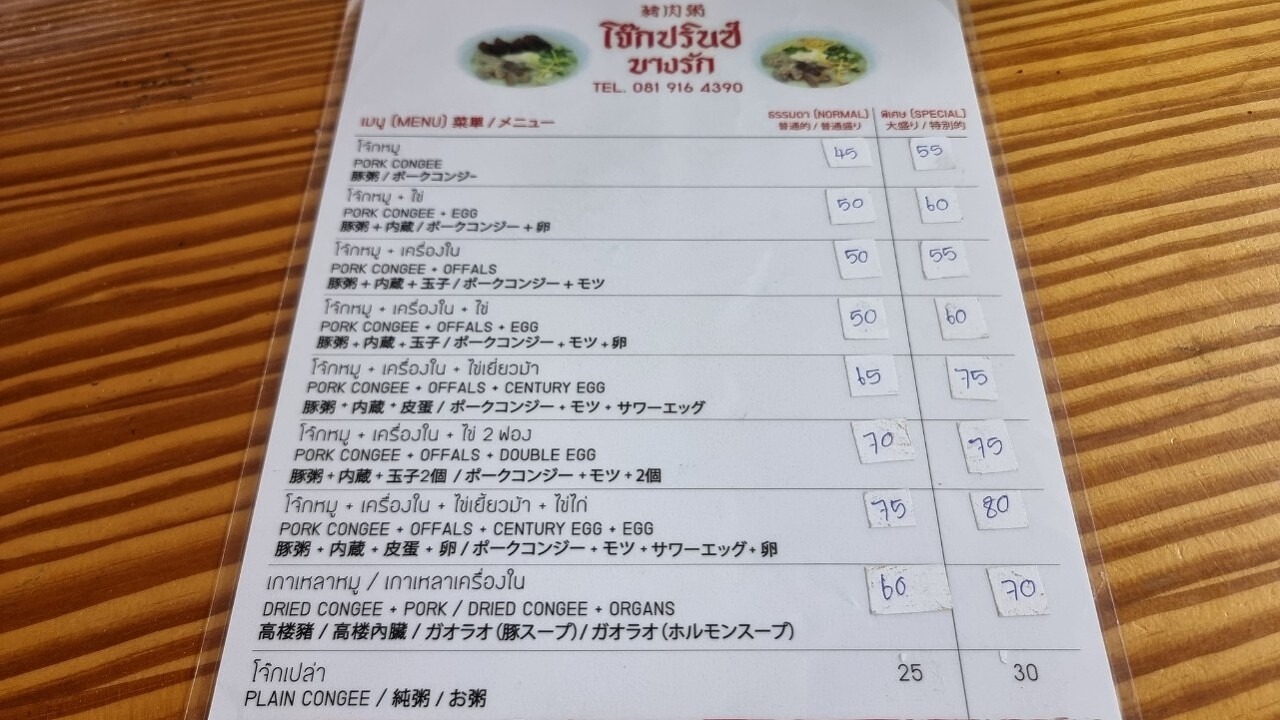 豬肉粥
โจ๊กปรินซ์
บางรัก
TEL. 081 916 4390
เมนู (MENU) 菜單 / メニュー
ธรรมดา (NORMAL) พิเศษ (SPECIAL)
普通的 / 普通盛り 大盛り / 特別的
โจ๊กหมู
PORK CONGEE 45 55
豚粥 / ポークコンジー
โจ๊กหมู + ไข่
PORK CONGEE + EGG 50 60
豚粥 + 内蔵 / ポークコンジー + 卵
โจ๊กหมู + เครื่องใน
PORK CONGEE + OFFALS 50 55
豚粥 + 内蔵 + 玉子 / ポークコンジー + モツ
โจ๊กหมู + เครื่องใน + ไข่
PORK CONGEE + OFFALS + EGG 50 60
豚粥 + 内蔵 + 玉子 / ポークコンジー + モツ + 卵
โจ๊กหมู + เครื่องใน + ไข่เยี่ยวม้า
PORK CONGEE + OFFALS + CENTURY EGG 65 75
豚粥 + 内蔵 + 皮蛋 / ポークコンジー + モツ + サワーエッグ
โจ๊กหมู + เครื่องใน + ไข่ 2 ฟอง
PORK CONGEE + OFFALS + DOUBLE EGG 70 75
豚粥 + 内蔵 + 玉子2個 / ポークコンジー + モツ + 2個
โจ๊กหมู + เครื่องใน + ไข่เยี่ยวม้า + ไข่ไก่
PORK CONGEE + OFFALS + CENTURY EGG + EGG 75 80
豚粥 + 内蔵 + 皮蛋 + 卵 / ポークコンジー + モツ + サワーエッグ + 卵
เกาเหลาหมู / เกาเหลาเครื่องใน
DRIED CONGEE + PORK / DRIED CONGEE + ORGANS 60 70
高楼豬 / 高楼內臟 / ガオラオ (豚スープ) / ガオラオ (ホルモンスープ)
โจ๊กเปล่า 25 30
PLAIN CONGEE / 純粥 / お粥